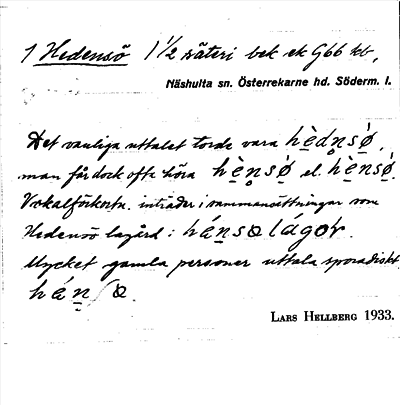 1 Hedensö 1 1/2 säteri bek ek G66 bb,
Näshulta sn. Österrekarne hd. Söderm. l.
Det vanliga uttalet torde vara hèdn̥sö̀,
man får dock ofta höra hèn̥sö̀ el. hènsö̀.
Vokalförkortn. inträder i sammansättningar som
Hedensö lagård: hánsɷlágɷr.
Mycket gamla personer uttala sporadiskt
LARS HELLBERG 1933.